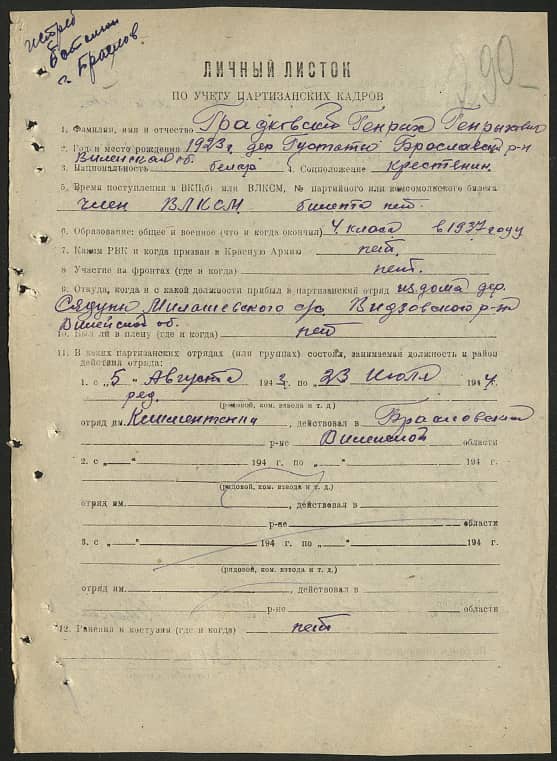 истреб
батальон
г. Браслов.
290
ЛИЧНЫЙ ЛИСТОК
ПО УЧЕТУ ПАРТИЗАНСКИХ КАДРОВ
1. Фамилия, имя и отчество Градковский Генрих Генрихович
2. Год и место рождения 1923 г. дер Густаты Брославский р-н
Вилейская об.
3. Национальность белар 4. Соцположение Крестянин
5. Время поступления в ВКП(б) или ВЛКСМ, № партийного или комсомолького билета
член ВЛКСМ билета нет.
6. Образование: общее и военное (что и когда окончил) 4 класа в 1937 году
7. Каким РВК и когда призван в Красную Армию нет.
8 Участие на фронтах (где и когда) нет.
9. Откуда, когда и с какой должности прибыл в партизанский отряд из дома дер.
Милашевского с/с. Видзовского р-на
Вилейской об.
10. Был ли в плену (где и когда) нет
11. В каких партизанских отрядах (или группах) состоял, занимаемая должность и район
действия отряда:
1. с „5„ Августа 1943 г. по „23 Июля 1944
ряд.
(рядовой, ком. взвода и т. д.)
отряд им. действовал в Брасловский
р-не Вилейской области
2. с „ „ 194 г. по „ „ 194 г.
(рядовой, ком. взвода и т. д.)
отряд им. , действовал в
р-не области
3. с „ „ 194 г. по „ „ 194 г.
(рядовой, ком. взвода и т. д.)
отряд им. , действовал в
р-не области
12. Ранения и контузия (где и когда) нет